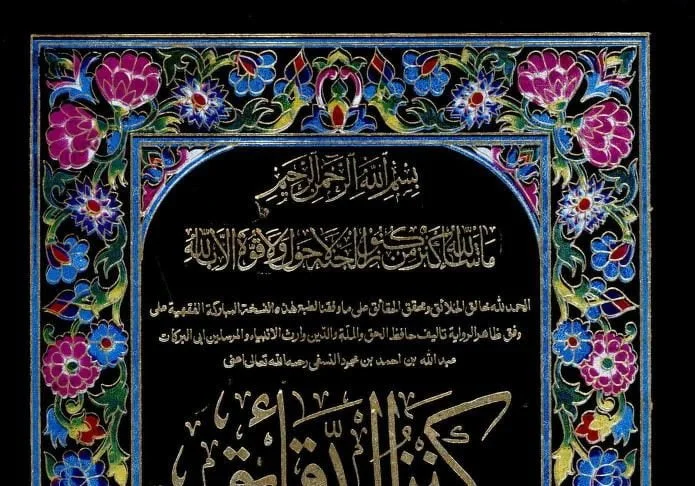 بسم الله الرحمن الرحيم
ماشاء الله أكبر من كنوز الجنة لا حول ولا قوة إلا بالله
الحمد لله خالق الخلائق ومحقق الحقائق على ما وفقنا لطبع هذه النسخة المباركة الفقهية على
وفق ظاهر الرواية تاليف حافظ الحق والملة والدين وارث الانبياء والمرسلين ابى البركات
عبد الله بن احمد بن محمود النسفى رحمه الله تعالى اعنى
كنز الدقائق